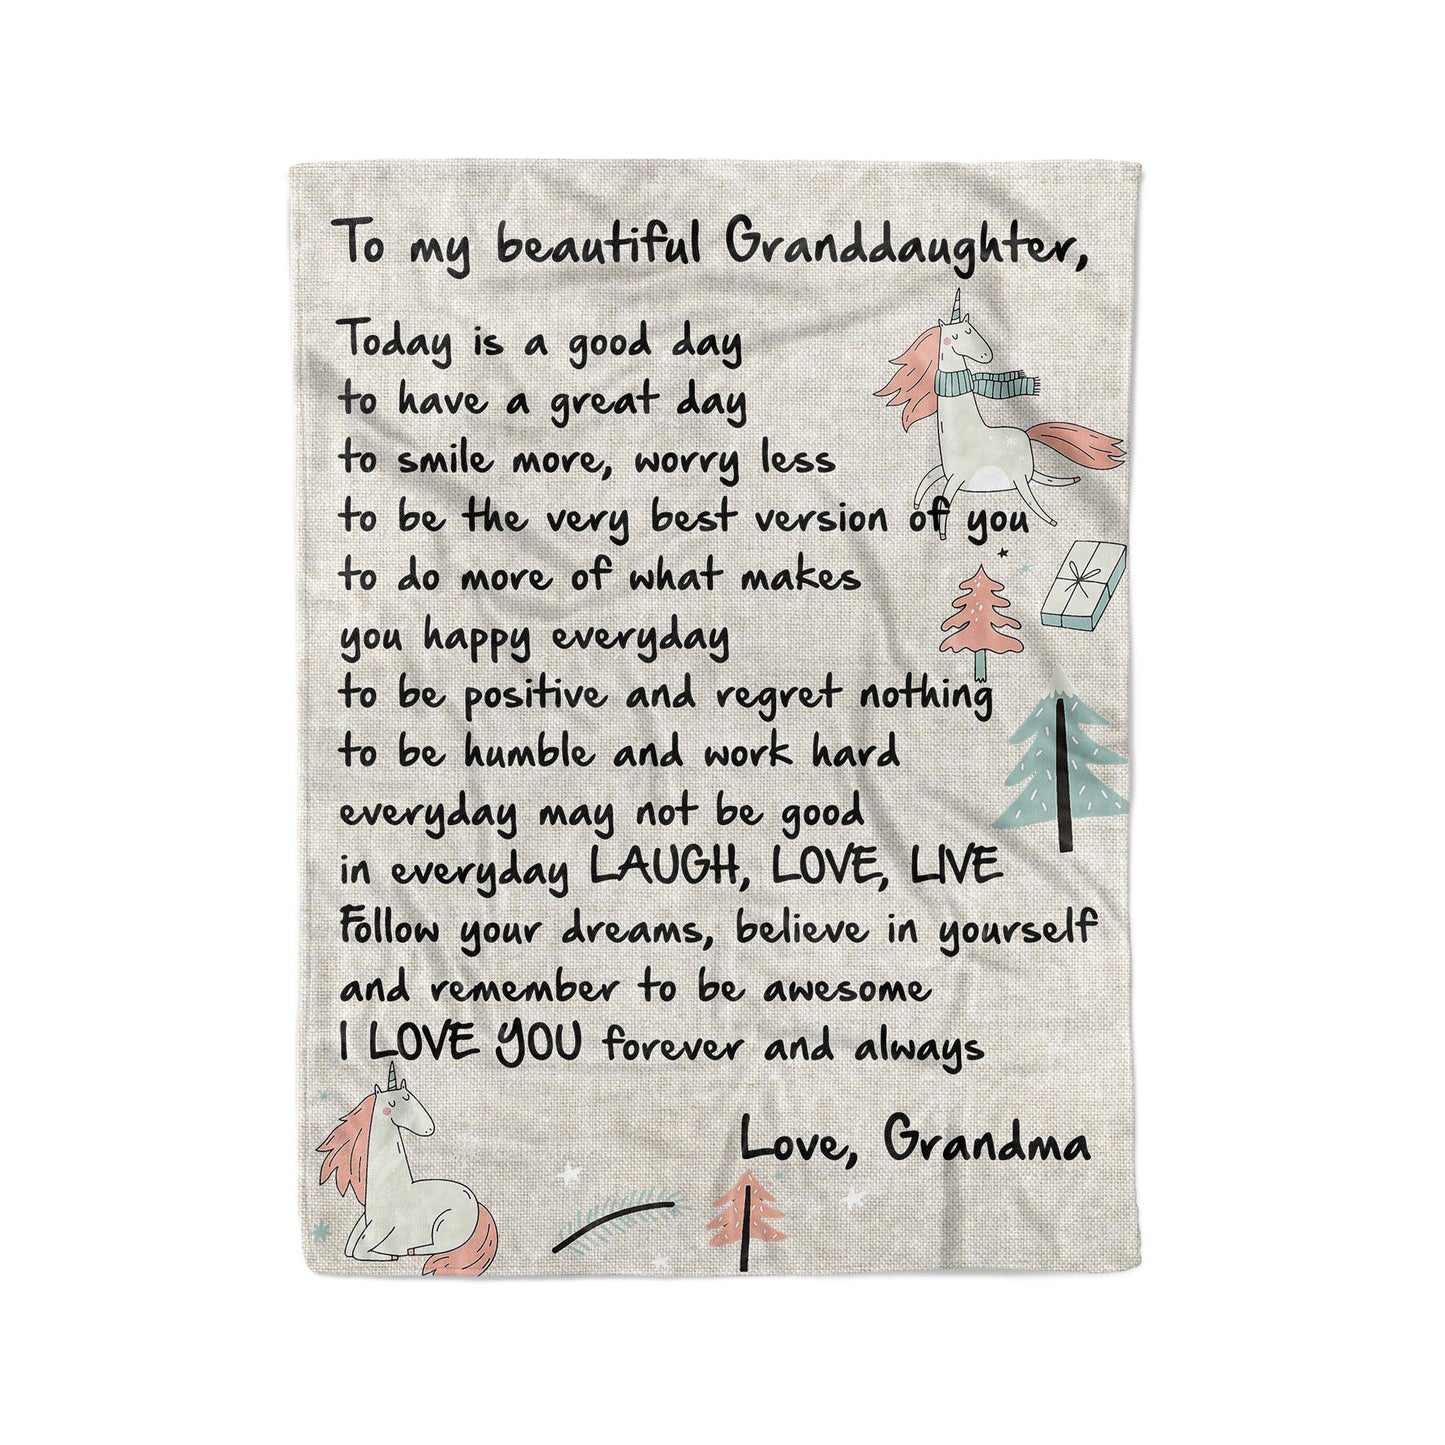 To my beautiful Granddaughter,
Today is a good day
to have a great day
to smile more, worry less
to be the very best version of you
to do more of what makes
you happy everyday
to be positive and regret nothing
to be humble and work hard
everyday may not be good
in everyday LAUGH, LOVE, LIVE
Follow your dreams, believe in yourself
and remember to be awesome
I LOVE YOU forever and always
Love, Grandma